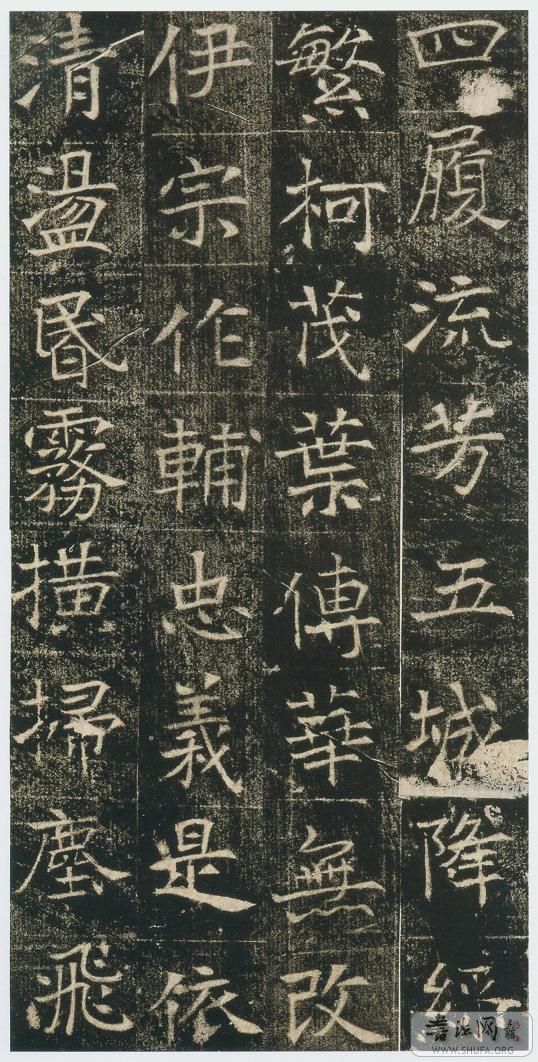 四履流芳五城隆
繁柯茂葉傳華無改
伊宗作輔忠義是依
清盪昬霧横掃塵飛
書法网
WWW.SHUFA.ORG